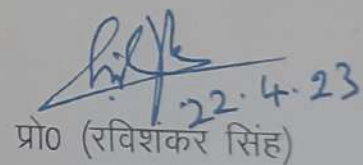 22.4.23
प्रो० (रविशंकर सिंह)